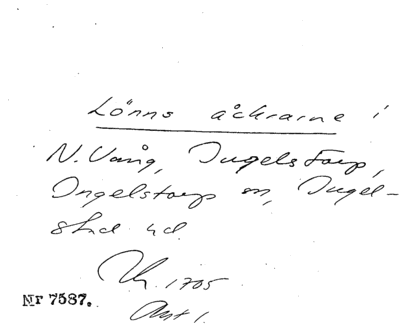 Lönns åkrarne i
N. Vång, Ingelstorp,
Ingelstorp sn, Ingel-
stad hd.
1705
Akt 1.
Nr 7587.